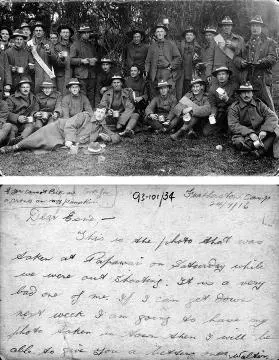 93-101/34
Featherston Camp
Dear Elsie –
This is the photo that was
taken at Papawai on Saturday while
we were out Shooting. It is a very
bad one of me. If I can get down
next week I am going to have my
photo taken in town then I will be
able to give you a better one.